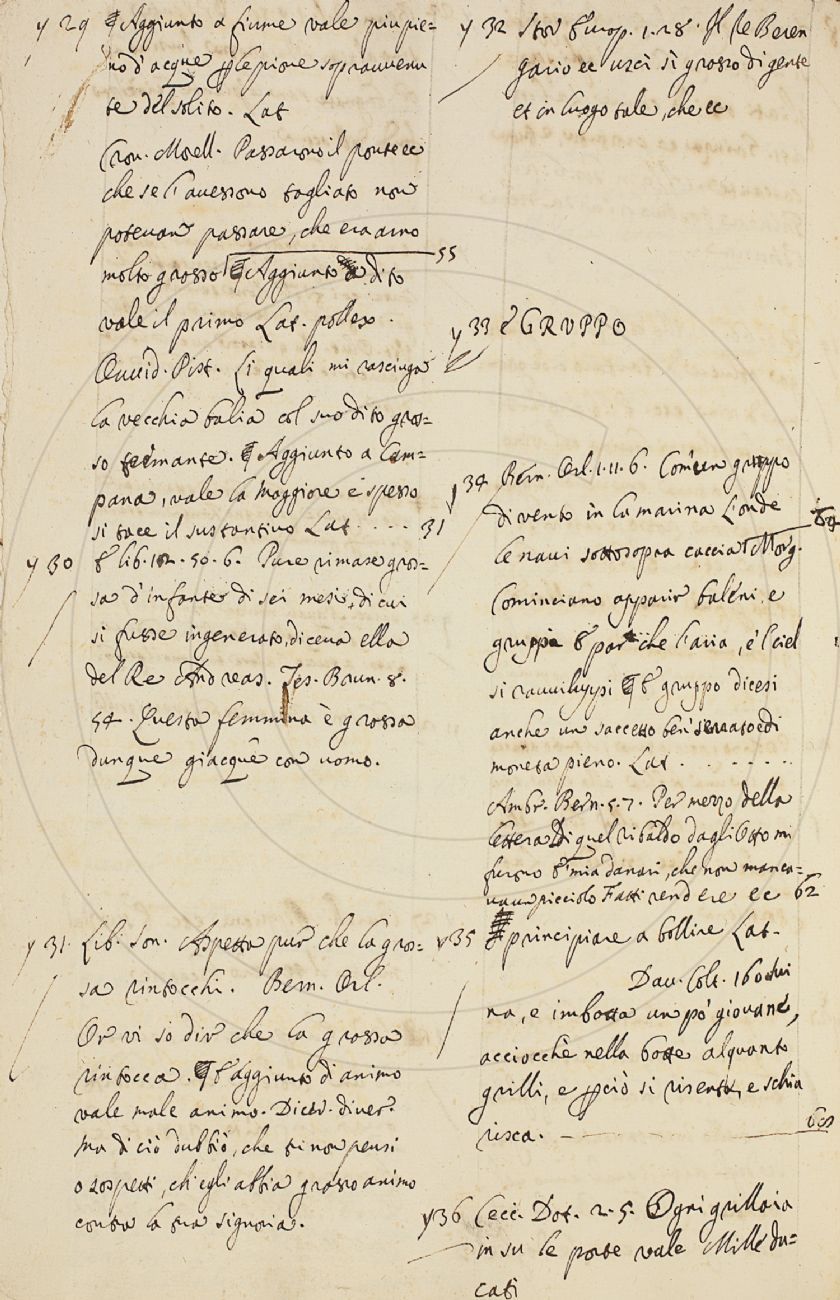 y 29 ¶ Aggiunto a fiume vale piu pie=
no d'acque p le piove sopravvenu
te del solito. Lat
Cron. Morell. Passarono il ponte ec
che se l'avessono tagliato non
potevano passare, che era arno
molto grosso ¶ Aggiunto a dito 55
vale il primo Lat. pollex.
Ovvid. Pist. Li quali mi rasciuga
la vecchia balia col suo dito gros=
so tremante. ¶ Aggiunto a Cam=
pana, vale la maggiore e spesso
si tace il sustantivo Lat. .... 31
y 30 E lib. 102. 50. 6. Pure rimase gros=
sa d'infante di sei mesi, di cui
si fusse ingenerato, diceva ella
del Re Andreas. Tes. Brun. 8.
54. Questa femmina è grossa
dunque giacque con uomo.
y 31. Lib. Son. Aspetta pur che la gros=
sa rintocchi. Bern. Orl.
Or vi so dir che la grossa
rintocca. ¶ E aggiunto di animo
vale male animo. Dictt. diver.
ma di ciò dubbiò, che tu non pensi
o sospetti, ch'egli abbia grosso animo
contra la tua signoria.
y 32 Stor. Europ. 1. 28. Il re Beren
gario ec uscì sì grosso di gente
et in luogo tale, che ec
y 33 E GRUPPO
y 34 Bern. Orl. 1. 11. 6. Com'un gruppo
di vento in la marina l'onde
le navi sottosopra caccia Morg.
Cominciano apparir baleni e
gruppi E par che l'aria, e 'l ciel
si ravviluppi ¶ E gruppo dicesi
anche un saccetto ben serrato e di
moneta pieno. Lat. .......
Ambr. Bern. 5. 7. Per mezzo della
lettera Di quel ribaldo dagli Otto mi
furono E mia danari, che non manca=
van picciolo Fatti rendere ec 62
y 35 E principiare a bollire Lat.
Dav. Colt. 160 svi
na, e imbotta un po' giovane,
acciocchè nella botte alquanto
grilli, e p ciò si risenta, e schia
risca. —
y 36 Cecc. Dot. 2. 5. Ogni grillaia
in su le porte vale Mille du=
cati